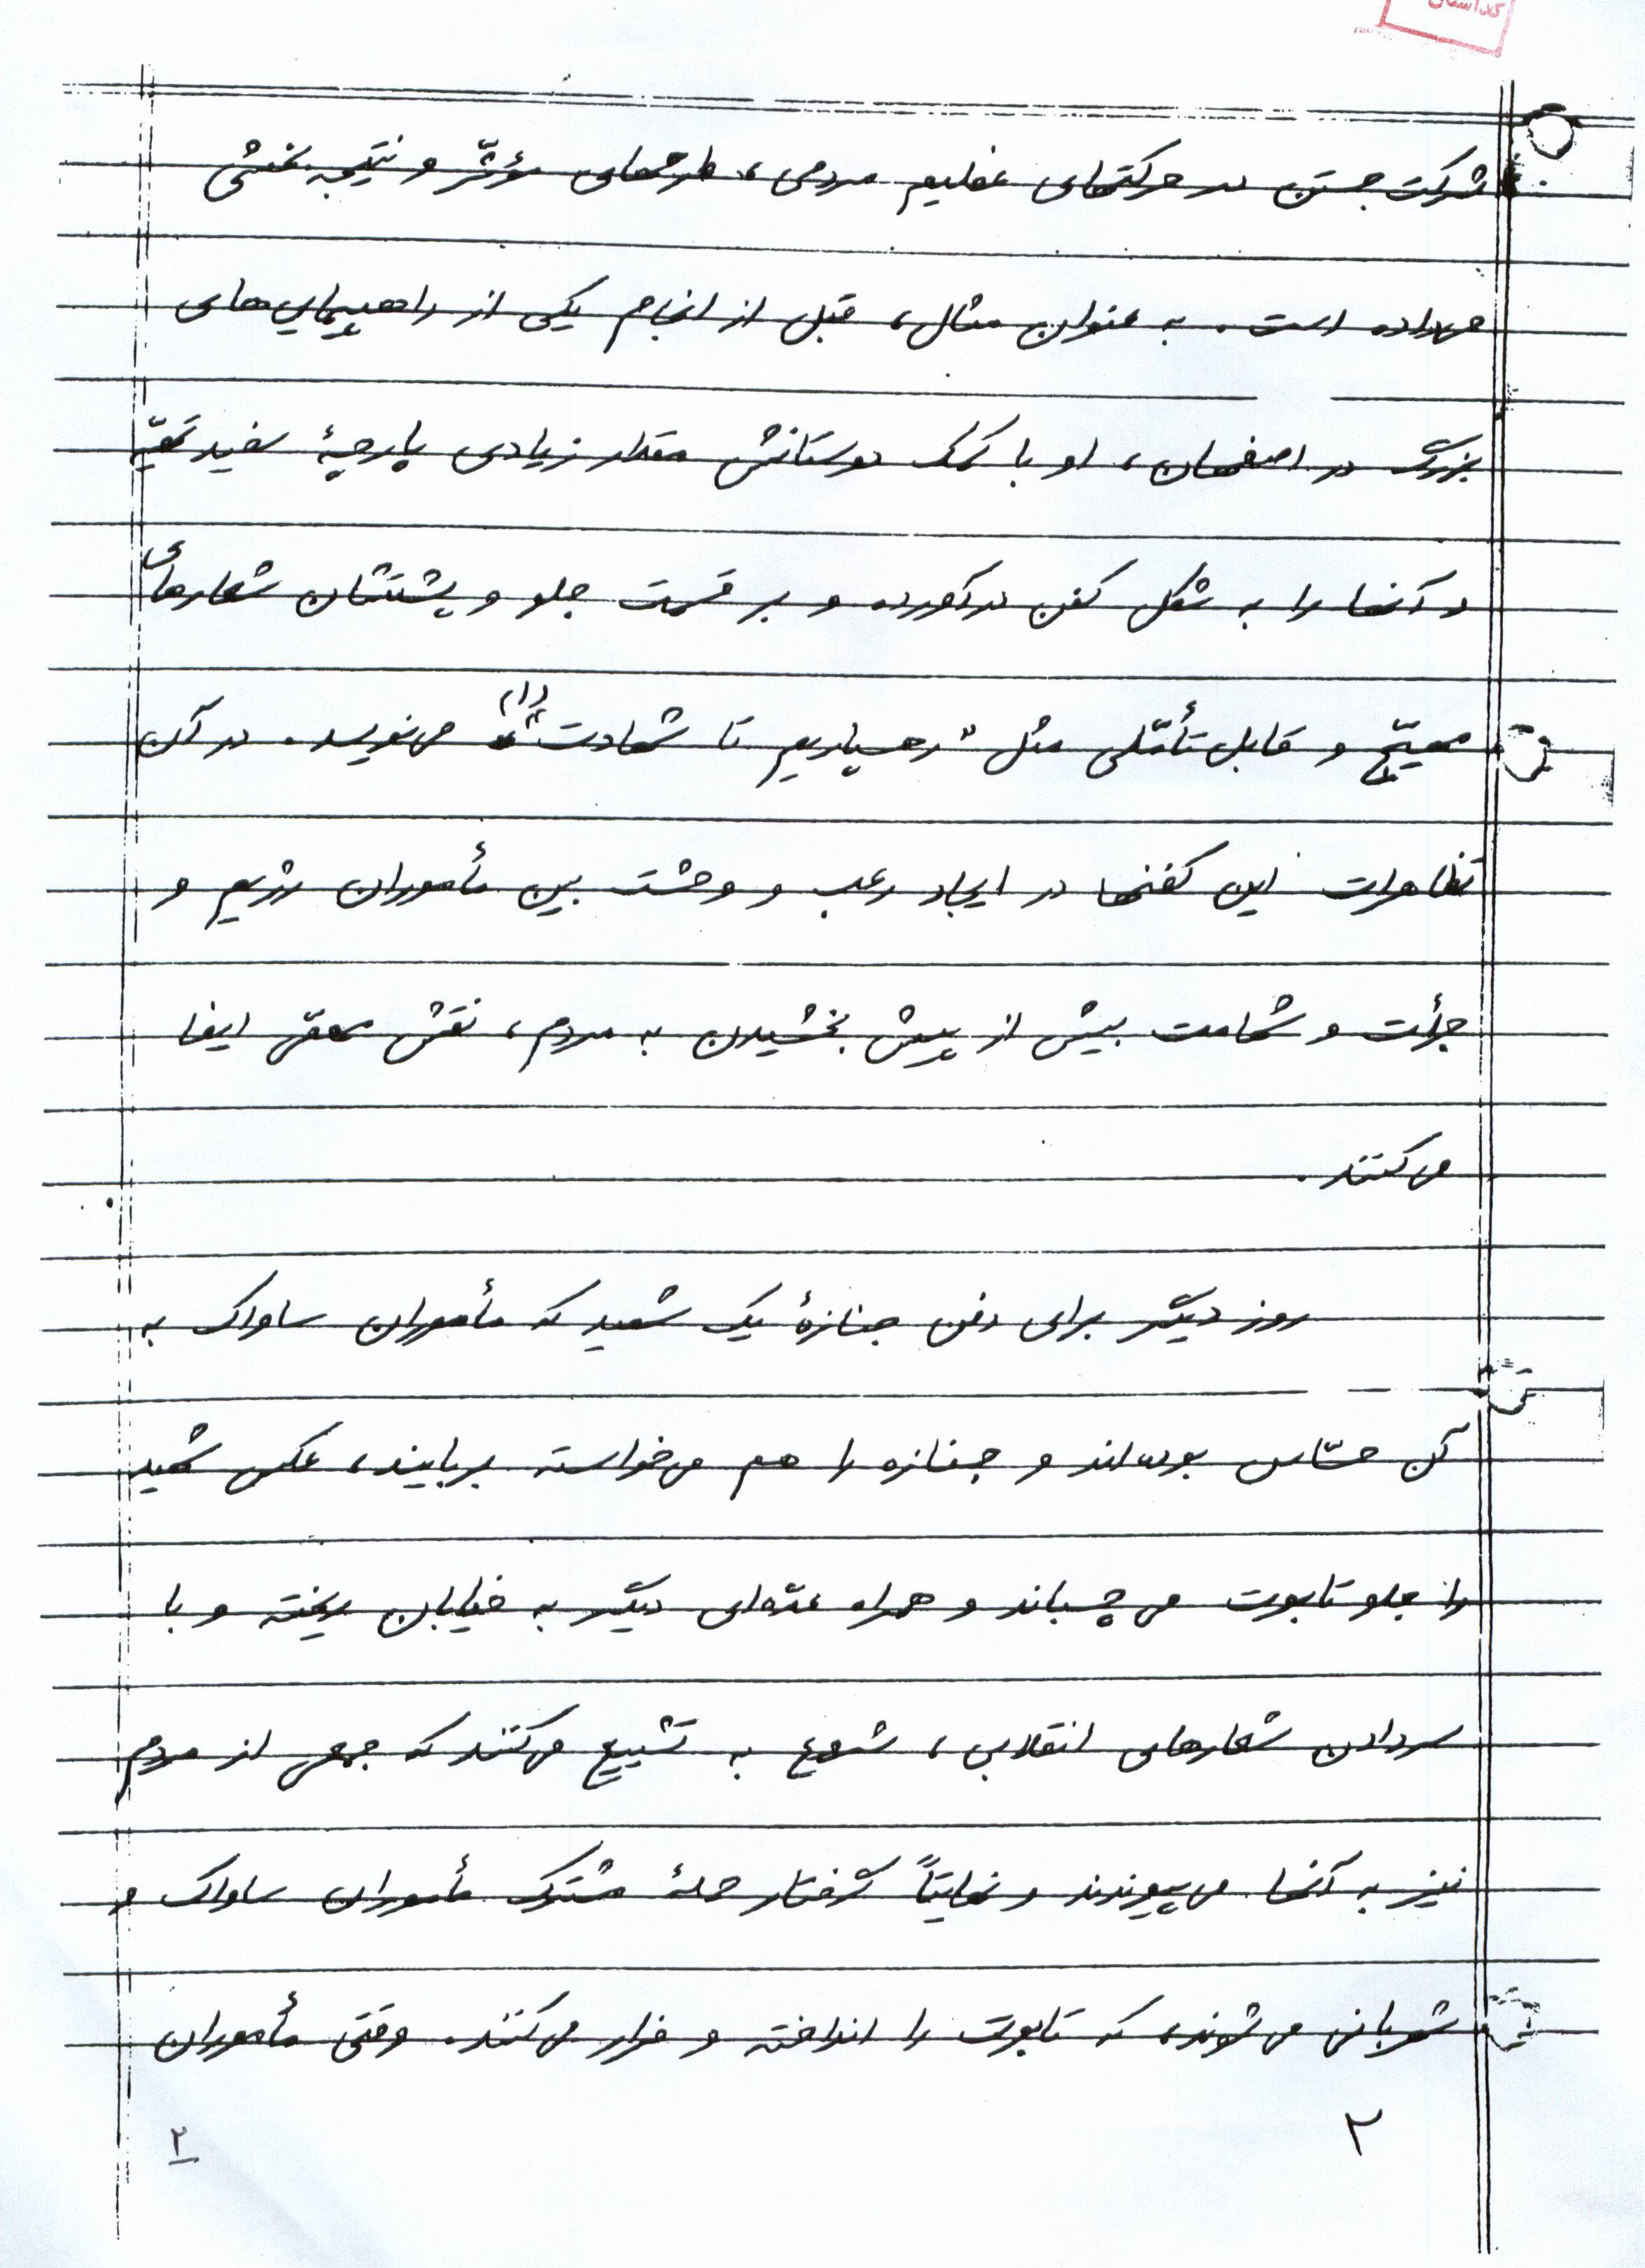 شرکت جستن در حرکتهای عظیم مردمی، طرحهای مؤثّر و نتیجه بخشی
می‌داده است. به عنوان مثال، قبل از انجام یکی از راهپیمایی‌های
بزرگ در اصفهان، او با کمک دوستانش مقدار زیادی پارچهٔ سفید تهیّه
و آنها را به شکل کفن درآورده و بر قسمت جلو و پشتشان شعارهای
مهیّج و قابل تأمّلی مثل "رهسپاریم تا شهادت"(۱) می‌نویسد. در آن
تظاهرات این کفنها در ایجاد رعب و وحشت بین مأموران رژیم و
جرأت و شهامت بیش از پیش بخشیدن به مردم، نقش مهمّی ایفا
می‌کنند.
روز دیگر برای دفن جنازهٔ یک شهید که مأموران ساواک به
آن حسّاس بوده‌اند و جنازه را هم می‌خواسته بربایند، عکس شهید
را جلو تابوت می‌چسباند و همراه عدّه‌ای دیگر به خیابان ریخته و با
سردادن شعارهای انقلابی، شروع به تشییع می‌کنند که جمعی از مردم
نیز به آنها می‌پیوندند و نهایتاً گرفتار حملهٔ مشترک مأموران ساواک و
شهربانی می‌شوند، که تابوت را انداخته و فرار می‌کنند. وقتی مأموران
۲
۲